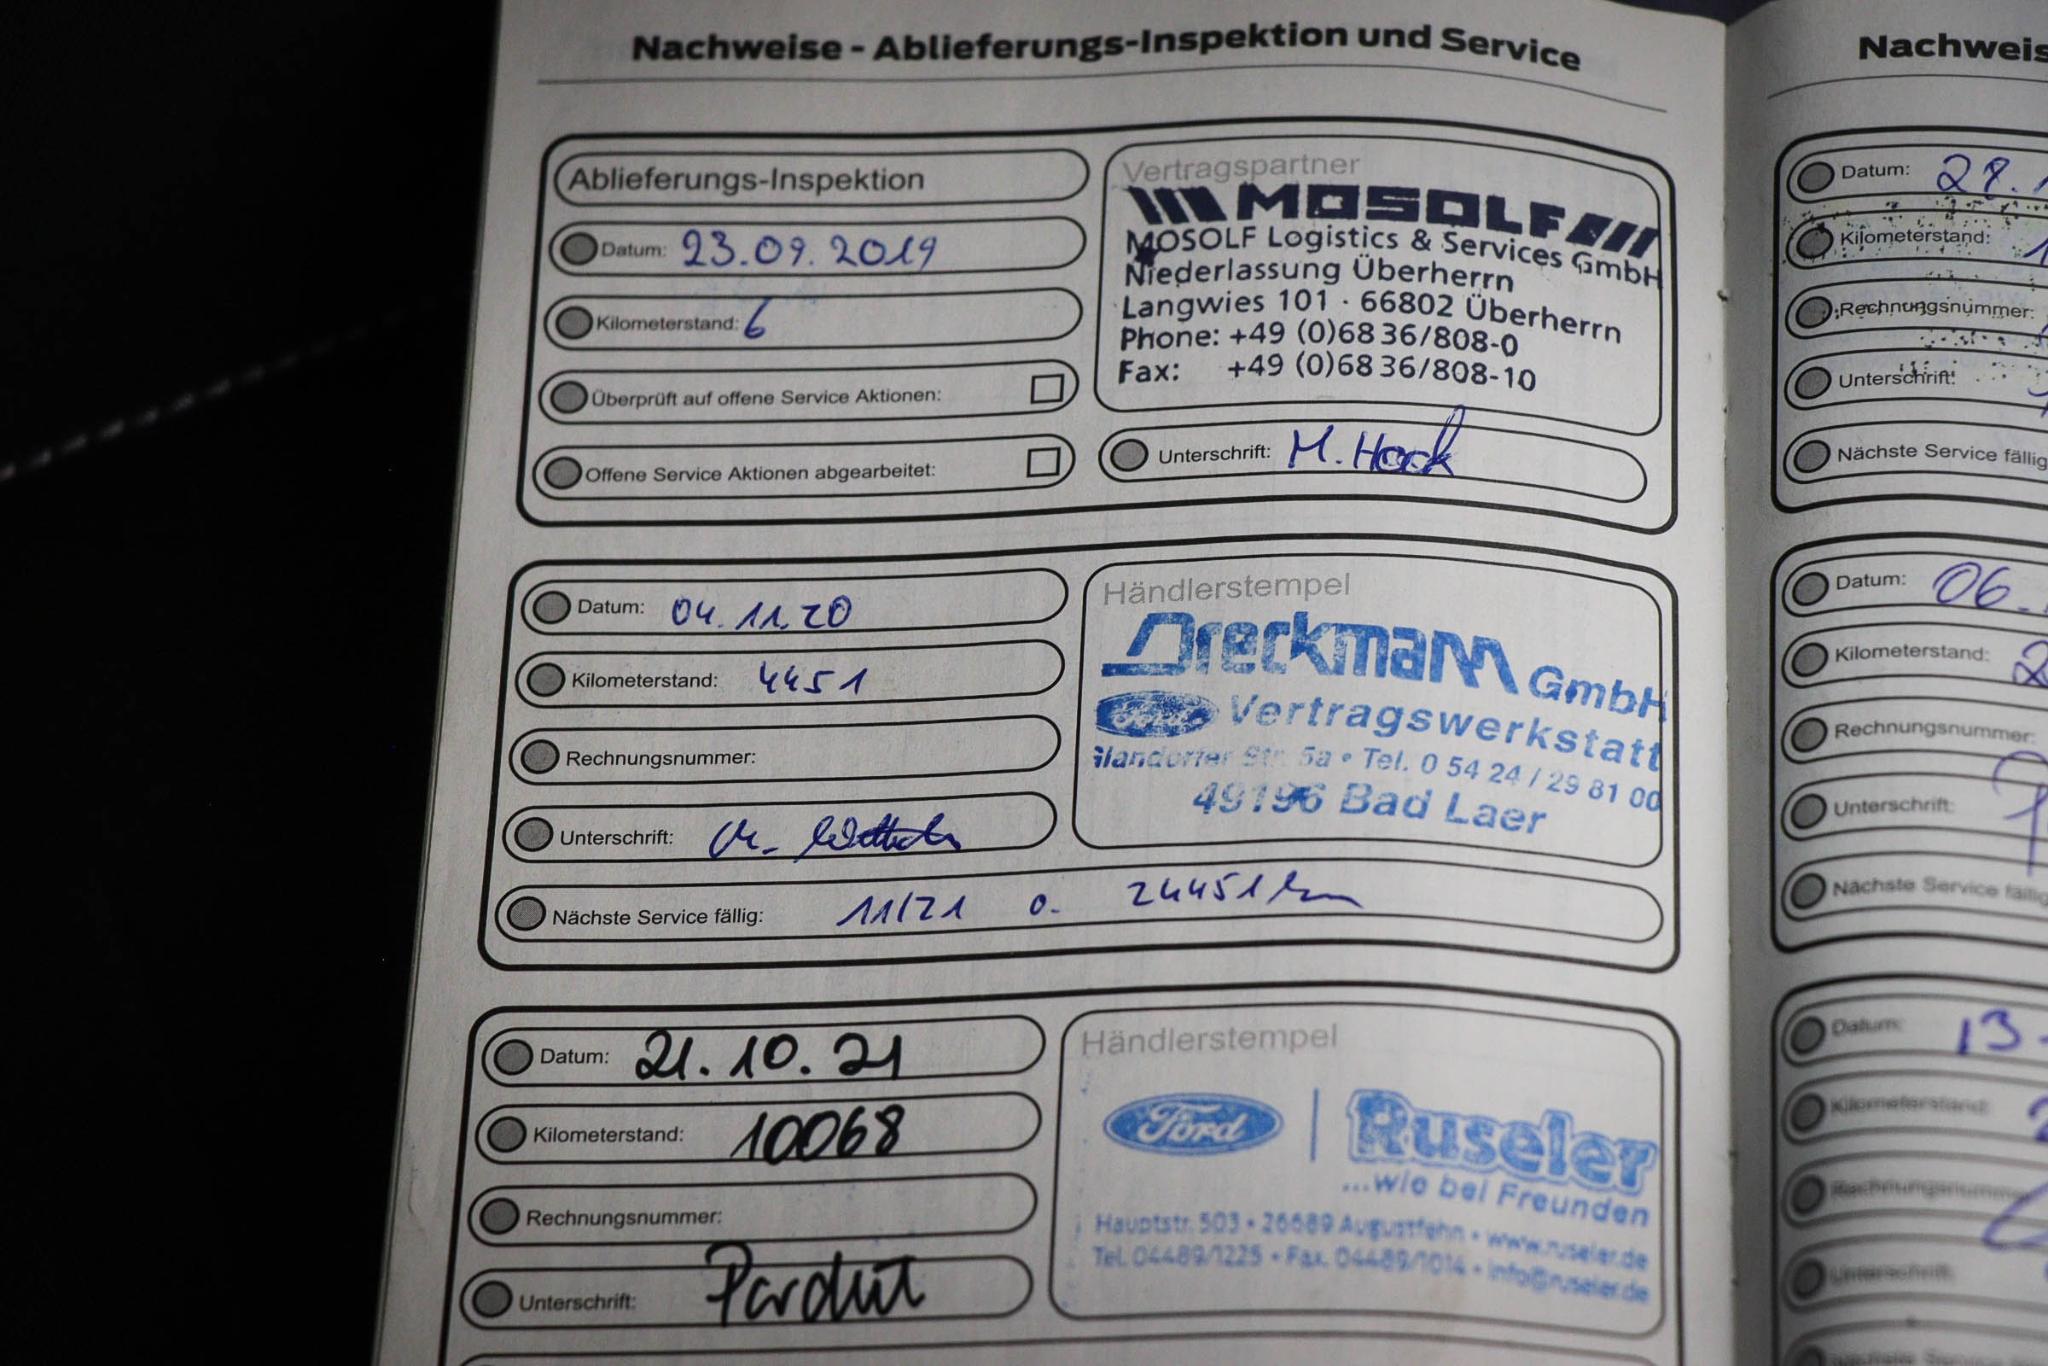 Nachweise - Ablieferungs-Inspektion und Service
Ablieferungs-Inspektion
Datum: 23.09.2019
Kilometerstand: 6
Überprüft auf offene Service Aktionen:
Offene Service Aktionen abgearbeitet:
Vertragspartner
MOSOLF
MOSOLF Logistics & Services GmbH
Niederlassung Überherrn
Langwies 101 · 66802 Überherrn
Phone: +49 (0)68 36/808-0
Fax: +49 (0)68 36/808-10
Unterschrift: M. Hock
Datum: 04.11.20
Kilometerstand: 4451
Rechnungsnummer:
Unterschrift:
Nächste Service fällig: 11/21 o. 24451 km
Händlerstempel
Dreckmann GmbH
Ford Vertragswerkstatt
Glandorfer Str. 5a • Tel. 0 54 24 / 29 81 00
49196 Bad Laer
Datum: 21.10.21
Kilometerstand: 10068
Rechnungsnummer:
Unterschrift:
Händlerstempel
Ford | Ruseler
...wie bei Freunden
Hauptstr. 503 • 26689 Augustfehn • www.ruseler.de
Tel. 04489/1225 • Fax. 04489/1014 • info@ruseler.de
Datum:
Kilometerstand:
Rechnungsnummer:
Unterschrift:
Nächste Service fällig
Datum: 06.
Kilometerstand:
Rechnungsnummer:
Unterschrift:
Nächste Service fällig
Datum: 13
Kilometerstand:
Unterschrift: